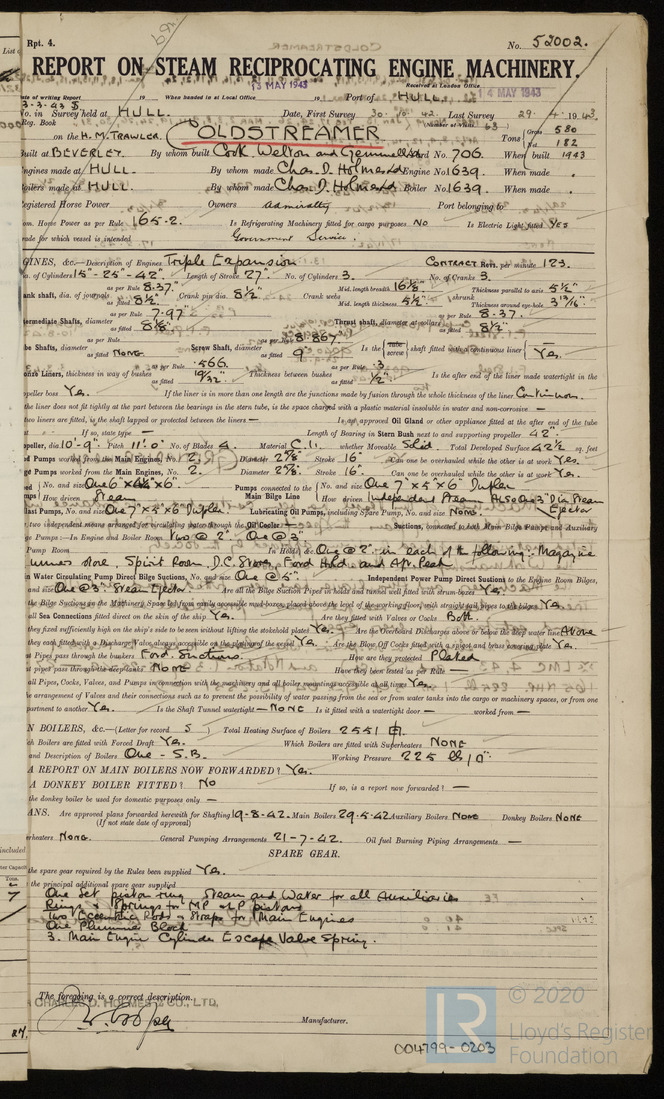 COLDSTREAMER
Rpt. 4.
No. 52002.
REPORT ON STEAM RECIPROCATING ENGINE MACHINERY.
13 MAY 1943
Received at London Office
14 MAY 1943
ate of writing Report 19 When handed in at Local Office 19 Port of HULL.
3-3-43
No. in Survey held at HULL. Date, First Survey 30-10-42. Last Survey 29-4-1943.
Reg. Book (Number of Visits 63)
on the H.M. TRAWLER. COLDSTREAMER Tons Gross 580
Net 182
Built at BEVERLEY. By whom built Cook, Welton and Gemmell Yard No. 706. When built 1943
Engines made at HULL. By whom made Chas. D. Holmes Engine No 1639. When made
Boilers made at HULL. By whom made Chas. D. Holmes Boiler No 1639. When made
Registered Horse Power Owners Admiralty Port belonging to
om. Horse Power as per Rule 165.2. Is Refrigerating Machinery fitted for cargo purposes NO Is Electric Light fitted YES
rade for which vessel is intended Government Service.
GINES, &c.—Description of Engines Triple Expansion CONTRACT Revs. per minute 123.
a. of Cylinders 15"-25"-42" Length of Stroke 27" No. of Cylinders 3. No. of Cranks 3.
ank shaft, dia. of journals as per Rule 8.37" as fitted 8½" Crank pin dia. 8½" Crank webs Mid. length breadth 16½" Thickness parallel to axis 5½"
Mid. length thickness 5½" shrunk Thickness around eye-hole 3 13/16"
termediate Shafts, diameter as per Rule 7.97" as fitted 8⅛" Thrust shaft, diameter at collars as per Rule 8.37. as fitted 8½"
be Shafts, diameter as per Rule as fitted NONE Screw Shaft, diameter as per Rule 8.867" as fitted 9" Is the tube screw shaft fitted with a continuous liner Yes.
onze Liners, thickness in way of bushes as per Rule .566 as fitted 19/32" Thickness between bushes as per Rule .3 as fitted ½" Is the after end of the liner made watertight in the
opeller boss Yes. If the liner is in more than one length are the junctions made by fusion through the whole thickness of the liner Continuous.
the liner does not fit tightly at the part between the bearings in the stern tube, is the space charged with a plastic material insoluble in water and non-corrosive —
two liners are fitted, is the shaft lapped or protected between the liners — Is an approved Oil Gland or other appliance fitted at the after end of the tube
If so, state type — Length of Bearing in Stern Bush next to and supporting propeller 42"
opeller, dia 10'-9" Pitch 11'.0" No. of Blades 4. Material C.I. whether Moveable Solid. Total Developed Surface 42½ sq. feet
ed Pumps worked from the Main Engines, No. 2. Diameter 2⅝" Stroke 16" Can one be overhauled while the other is at work Yes.
ge Pumps worked from the Main Engines, No. 2. Diameter 2⅝" Stroke 16". Can one be overhauled while the other is at work Yes.
No. and size One 6"x4½"x6" Pumps connected to the Main Bilge Line No. and size One 7"x5"x6" Duplex
How driven Steam How driven Independent Steam Also One 3" Dia Steam Ejector
last Pumps, No. and size One 7"x5"x6" Duplex. Lubricating Oil Pumps, including Spare Pump, No. and size None.
two independent means arranged for circulating water through the Oil Cooler — Suctions, connected to both Main Bilge Pumps and Auxiliary
ge Pumps:—In Engine and Boiler Room Two @ 2" One @ 3"
Pump Room In Holds, &c One @ 2" in each of the following:- Magazine
unner store, Spirit Room, D.C. Store, Ford. Hold. and Aft. Peak.
n Water Circulating Pump Direct Bilge Suctions, No. and size One @ 5" Independent Power Pump Direct Suctions to the Engine Room Bilges,
and size One @ 3" Steam Ejector. Are all the Bilge Suction Pipes in holds and tunnel well fitted with strum-boxes Yes.
the Bilge Suctions in the Machinery Space led from easily accessible mud-boxes, placed above the level of the working floor, with straight tail pipes to the bilges Yes.
all Sea Connections fitted direct on the skin of the ship Yes. Are they fitted with Valves or Cocks Both.
they fixed sufficiently high on the ship's side to be seen without lifting the stokehold plates Yes. Are the Overboard Discharges above or below the deep water line Above
they each fitted with a Discharge Valve always accessible on the plating of the vessel Yes. Are the Blow Off Cocks fitted with a spigot and brass covering plate Yes.
at Pipes pass through the bunkers Ford. Suctions. How are they protected Plated
at pipes pass through the deep tanks None Have they been tested as per Rule —
all Pipes, Cocks, Valves, and Pumps in connection with the machinery and all boiler mountings accessible at all times Yes.
he arrangement of Valves and their connections such as to prevent the possibility of water passing from the sea or from water tanks into the cargo or machinery spaces, or from one
partment to another Yes. Is the Shaft Tunnel watertight — NONE Is it fitted with a watertight door — worked from —
N BOILERS, &c.—(Letter for record S) Total Heating Surface of Boilers 2551
ch Boilers are fitted with Forced Draft Yes. Which Boilers are fitted with Superheaters NONE
and Description of Boilers One - S.B. Working Pressure 225 lb/□"
A REPORT ON MAIN BOILERS NOW FORWARDED? Yes.
A DONKEY BOILER FITTED? NO If so, is a report now forwarded? —
the donkey boiler be used for domestic purposes only —
ANS. Are approved plans forwarded herewith for Shafting 19-8-42. Main Boilers 29-5-42 Auxiliary Boilers NONE Donkey Boilers NONE
(If not state date of approval)
erheaters NONE. General Pumping Arrangements 21-7-42. Oil fuel Burning Piping Arrangements —
SPARE GEAR.
the spare gear required by the Rules been supplied Yes.
the principal additional spare gear supplied
One Set piston ring, Steam and Water for all Auxiliaries
Rings & Springs for MP & LP pistons
Two Eccentric Rods & Straps for Main Engines
One Plummer Block
3. Main Engine Cylinder Escape Valve Spring.
The foregoing is a correct description.
CHARLES D. HOLMES & CO., LTD,
Manufacturer.
004799-0203
LR
© 2020
Lloyd's Register
Foundation